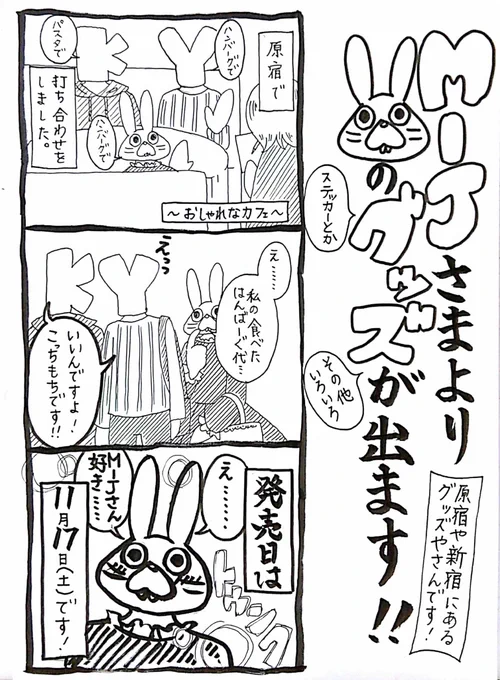 M-Jさまより
のグッズが出ます!!
ステッカーとか
その他
いろいろ
原宿や新宿にある
グッズやさんです!
原宿で
ハンバーグで
Y
K
パスタで
ハンバーグで
打ち合わせを
しました。
〜おしゃれなカフェ〜
え……
私の食べた
はんばーぐ代…
えっ
Y
K
いいんですよ!
こっちもちです!!
発売日は
え……
M-Jさん
好き……
トゥンク
11月17日(土)です!